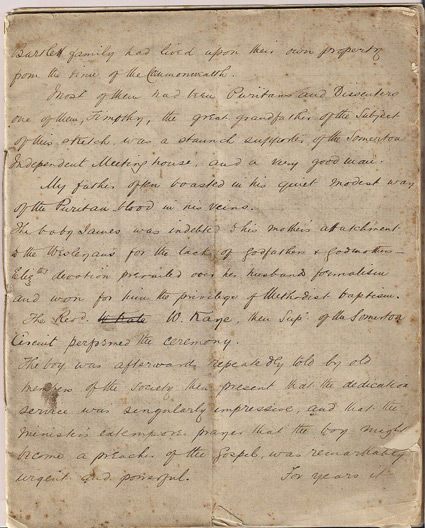 Bartlett family had lived upon their own property
from the time of the Commonwealth.
Most of them had been Puritans and Dissenters
one of them, Timothy, the great grandfather of the Subject
of this sketch, was a staunch supporter of the Somerton
Independent Meeting house, and a very good man.
My father often boasted in his quiet modest way
of the Puritan blood in his veins.
The baby James was indebted to his mothers attachment
to the Wesleyans for the lack of godfathers & godmothers –
Elizths devotion prevailed over her husbands formalism
and won for him the privilege of Methodist baptism.
The Revd. W. Kaye, then Supt of the Somerton
Circuit performed the ceremony.
The boy was afterwards repeatedly told by old
members of the Society then present that the dedication
service was singularly impressive, and that the
ministers extempore prayer that the boy might
become a preacher of the Gospel, was remarkably
urgent and powerful. For years it